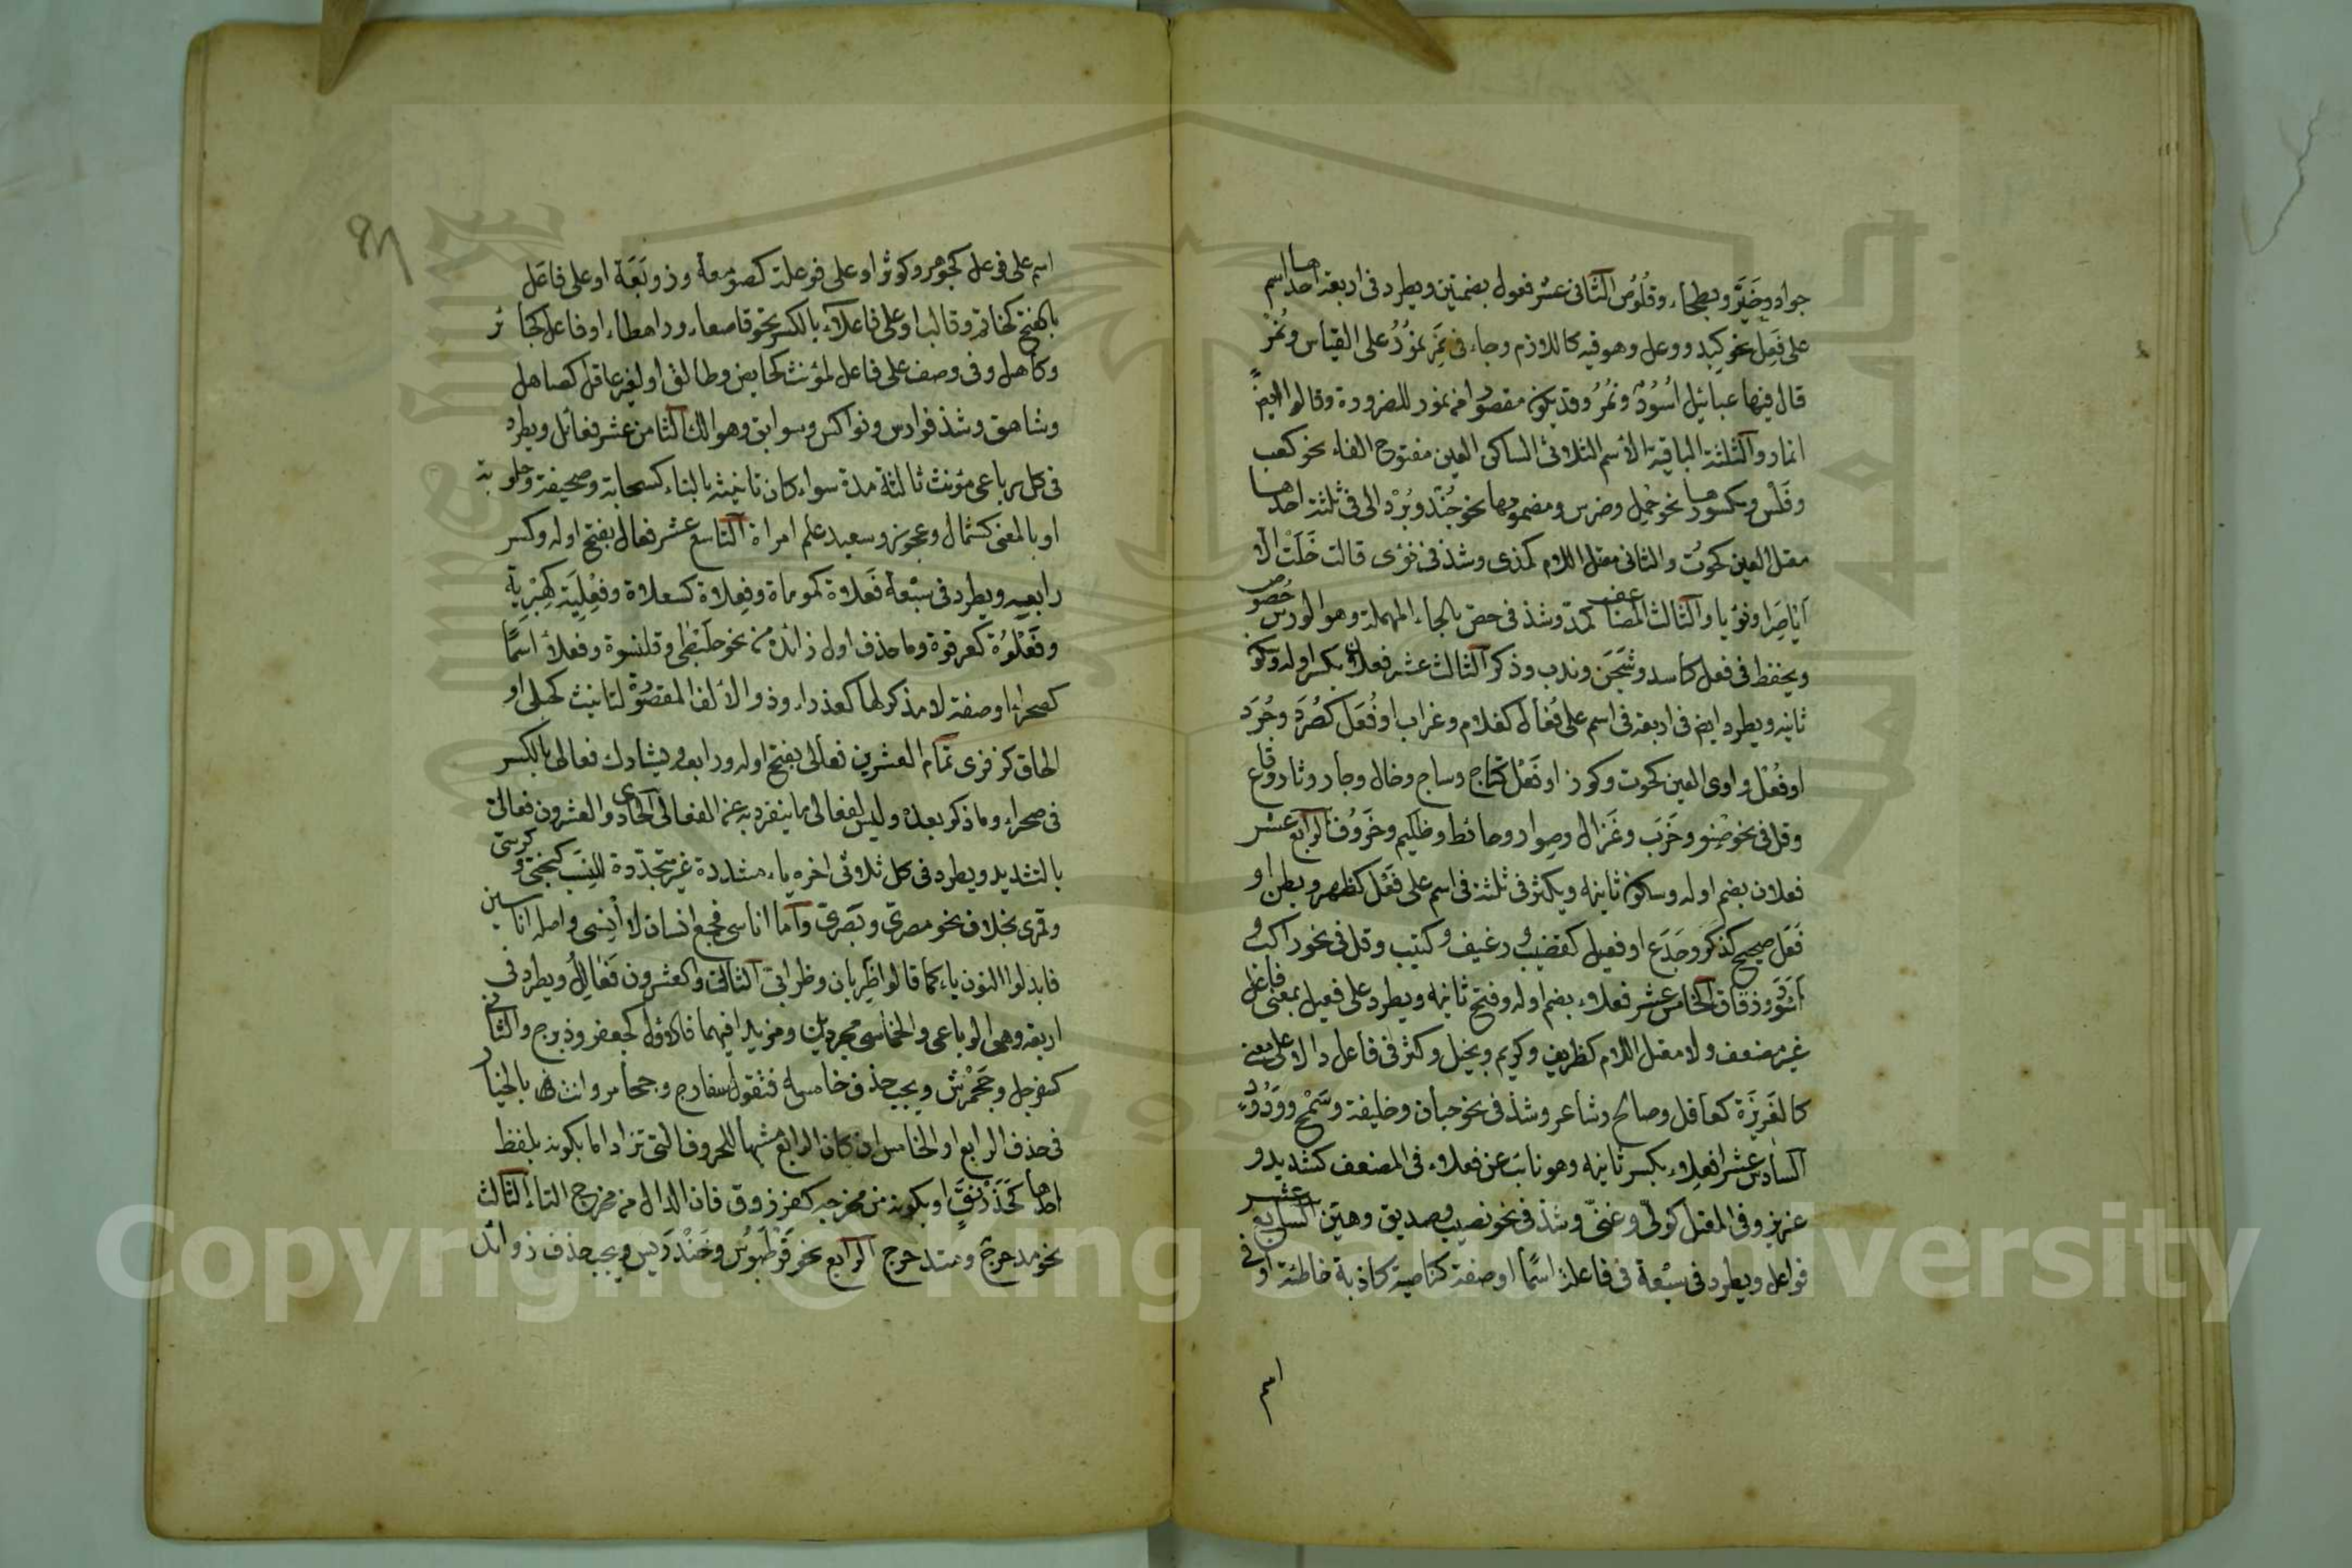 جواد وخَيِّر وبطحاء وقلُوص الثانى عشر فعول بضمتين ويطرد فى اربعة احدها اسم
على فَعِل نحو كبد ووعل وهو فيه كاللازم وجاء فى نَمِر نمُوُرٌ على القياس ونُمُرٌ
قال فيها عيائيل اُسُودٌ ونُمُرُ وقد يكون مقصورا من نمور للضرورة وقالوا ايضً
انمار والثلثة الباقية الأسم الثلاثى الساكن العين مفتوح الفاء نحو كعب
وفَلْس ومكسورها نحو حِمْل وضرس ومضمومها نحو جُنْد وبُرْد الى فى ثلثة احدها
معتل العين كحوُت والثانى معتل اللام كمدى وشذ فى نؤى قالت خَلَتْ الا
آياصِرا ونؤيا والثالث المضاعف كمدّ وشذ فى حصّ بالحاء المهملة وهو الورس حُصُوص
ويحفظ فى فعل كاسد وشَجَن وندب وذكر الثالث عشر فعلان بكسر اوله وسكون
ثانيه ويطرد ايض فى اربعة فى اسم على فُعال كغلام وغراب او فُعَل كصُرَد وجُرَد
او فُعْل واوى العين كحوت وكوز او فَعَل كتاج وساج وخال وجار ونار وقاع
وقل فى نحو صِنْو وخَرَب وغَزال وصِوار وحائط وظَليم وخَرُوف الرابع عشر
فعلان بضم اوله وسكون ثانيه ويكثر فى ثلثة فى اسم على فَعْل كظهر وبطن او
فَعَل صحيح كذكَر وجَذَع او فعيل كقضيب ورغيف وكثيب وقل فى نحو راكب و
وزقاق الخامس عشر فعلاء بضم اوله وفتح ثانيه ويطرد على فعيل بمعنى فاعل
غير مضعف ولا معتل اللام كظريف وكريم وبخيل وكثر فى فاعل دالا على معنى
كالغَريزَة كعاقل وصالح وشاعر وشذ فى نحو جبان وخليفة وسَمْح ووَدُودٍ
السادس عشر افعِلاء بكسر ثانيه وهو نائب عن فعلاء فى المضعف كشديد و
عزيز وفى المعتل كولىّ وغنىّ وشذ فى نحو نصيب وصديق وهيّن السابع عشر
فواعل ويطرد فى سبعة فى فاعلة اسمًا او صفة كناصية كاذبة خاطئة او فى
اسم على فوعل كجوهر وكوثر او على فوعلة كصومعة وزوبَعَة او على فاعَل
بالفتح كخاتم وقالب او على فاعلاء بالكسر نحو قاصعاء وراهطاء او فاعل كجائز
وكاهل وفى وصف على فاعل لمؤنث كحايض وطالق او لغير عاقل كصاهل
وشاهق وشذ فوارس ونواكس وسوابق وهوالك الثامن عشر فعائل ويطرد
فى كل رباعى مؤنث ثالثه مدة سواء كان تانيثه بالتاء كسحابة وصحيفة وحلوبة
او بالمعنى كشمال وعجوز وسعيد علم امراة التاسع عشر فعال بفتح اوله وكسر
رابعه ويطرد فى سبعة فَعلاة كموماة وفِعلاة كسعلاة وفِعْلِيَة كهِبْرِية
وفَعْلُوُة كعرقوة وما حذف اول زائده من نحو حَبَنْطى وقلنسوة وفعلاء اسمًا
كصحراء او صفة لا مذكر لها كعذراء وذو الالف المقصورة لتانيث كحبلى او
الحاق كذفرى تمام العشرين فعالى بفتح اوله ورابعه ويشارك فعالى بالكسر
فى صحراء وما ذكر بعده وليس لفعالى ما ينفرد به عن الفعالى الحادى والعشرون فعالىّ
بالتشديد ويطرد فى كل ثلاثى اخره ياء مشددة غير متجدّدة للنِسَب كبختى وكرسى
وقمرى بخلاف نحو مصرىّ وبَصَرىّ واما اناسى فجمع انسان لا اِنسى واصله اناسين
فابدلوا النون ياء كما قالوا ظَرِبان وظرابى الثالث والعشرون فَعَالِلُ ويطرد فى
اربعة وهى الرباعى والخماسى مجردين ومزيدا فيهما فالاول كجعفر وزبرج والثانى
كسفرجل وجَحْمَرْش ويجب حذف خامسه فتقول سفارج وجحامر وانت بالخيار
فى حذف الرابع او الخامس ان كان الرابع مشبها للحروف التى تزاد اما بكونه بلفظ
احدها كخَدَرْنَقٍ او بكونه من مخرجه كفرزدق فان الدال من مخرج التاء الثالث
نحو مدحرج ومتدحرج الرابع نحو قَرْطَبُوس وخَنْدَرِيس ويجب حذف زوائد